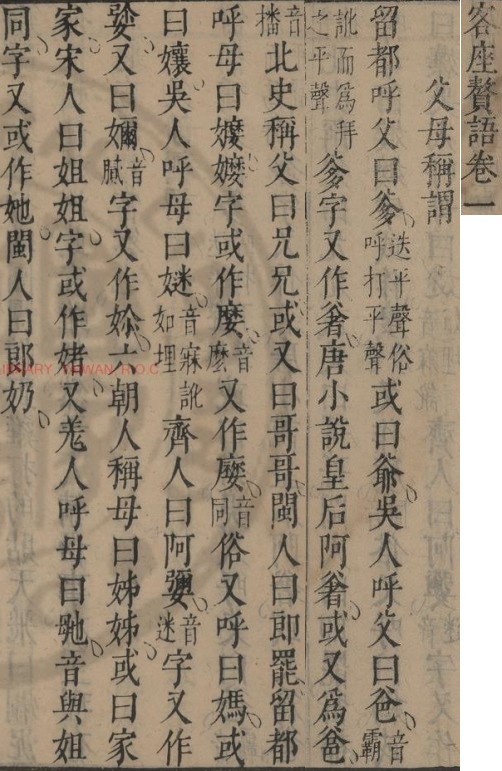 客座贅語卷一
父母稱謂
留都呼父曰爹迭平聲俗呼打平聲或曰爺吳人呼父曰爸音霸
訛而爲拜之平聲爹字又作奢唐小說皇后阿奢或又爲爸
音播北史稱父曰兄兄或又曰哥哥閩人曰郎罷留都
呼母曰嬤嬤字或作麼音麼又作同音俗又呼曰媽或
曰孃吳人呼母曰㜆音寐訛如埋齊人曰阿㜷音迷字又作
又曰嬭音膩字又作妳六朝人稱母曰姊姊或曰家
家宋人曰姐姐字或作媎又羌人呼母曰毑音與姐
同字又或作她閩人曰郎奶